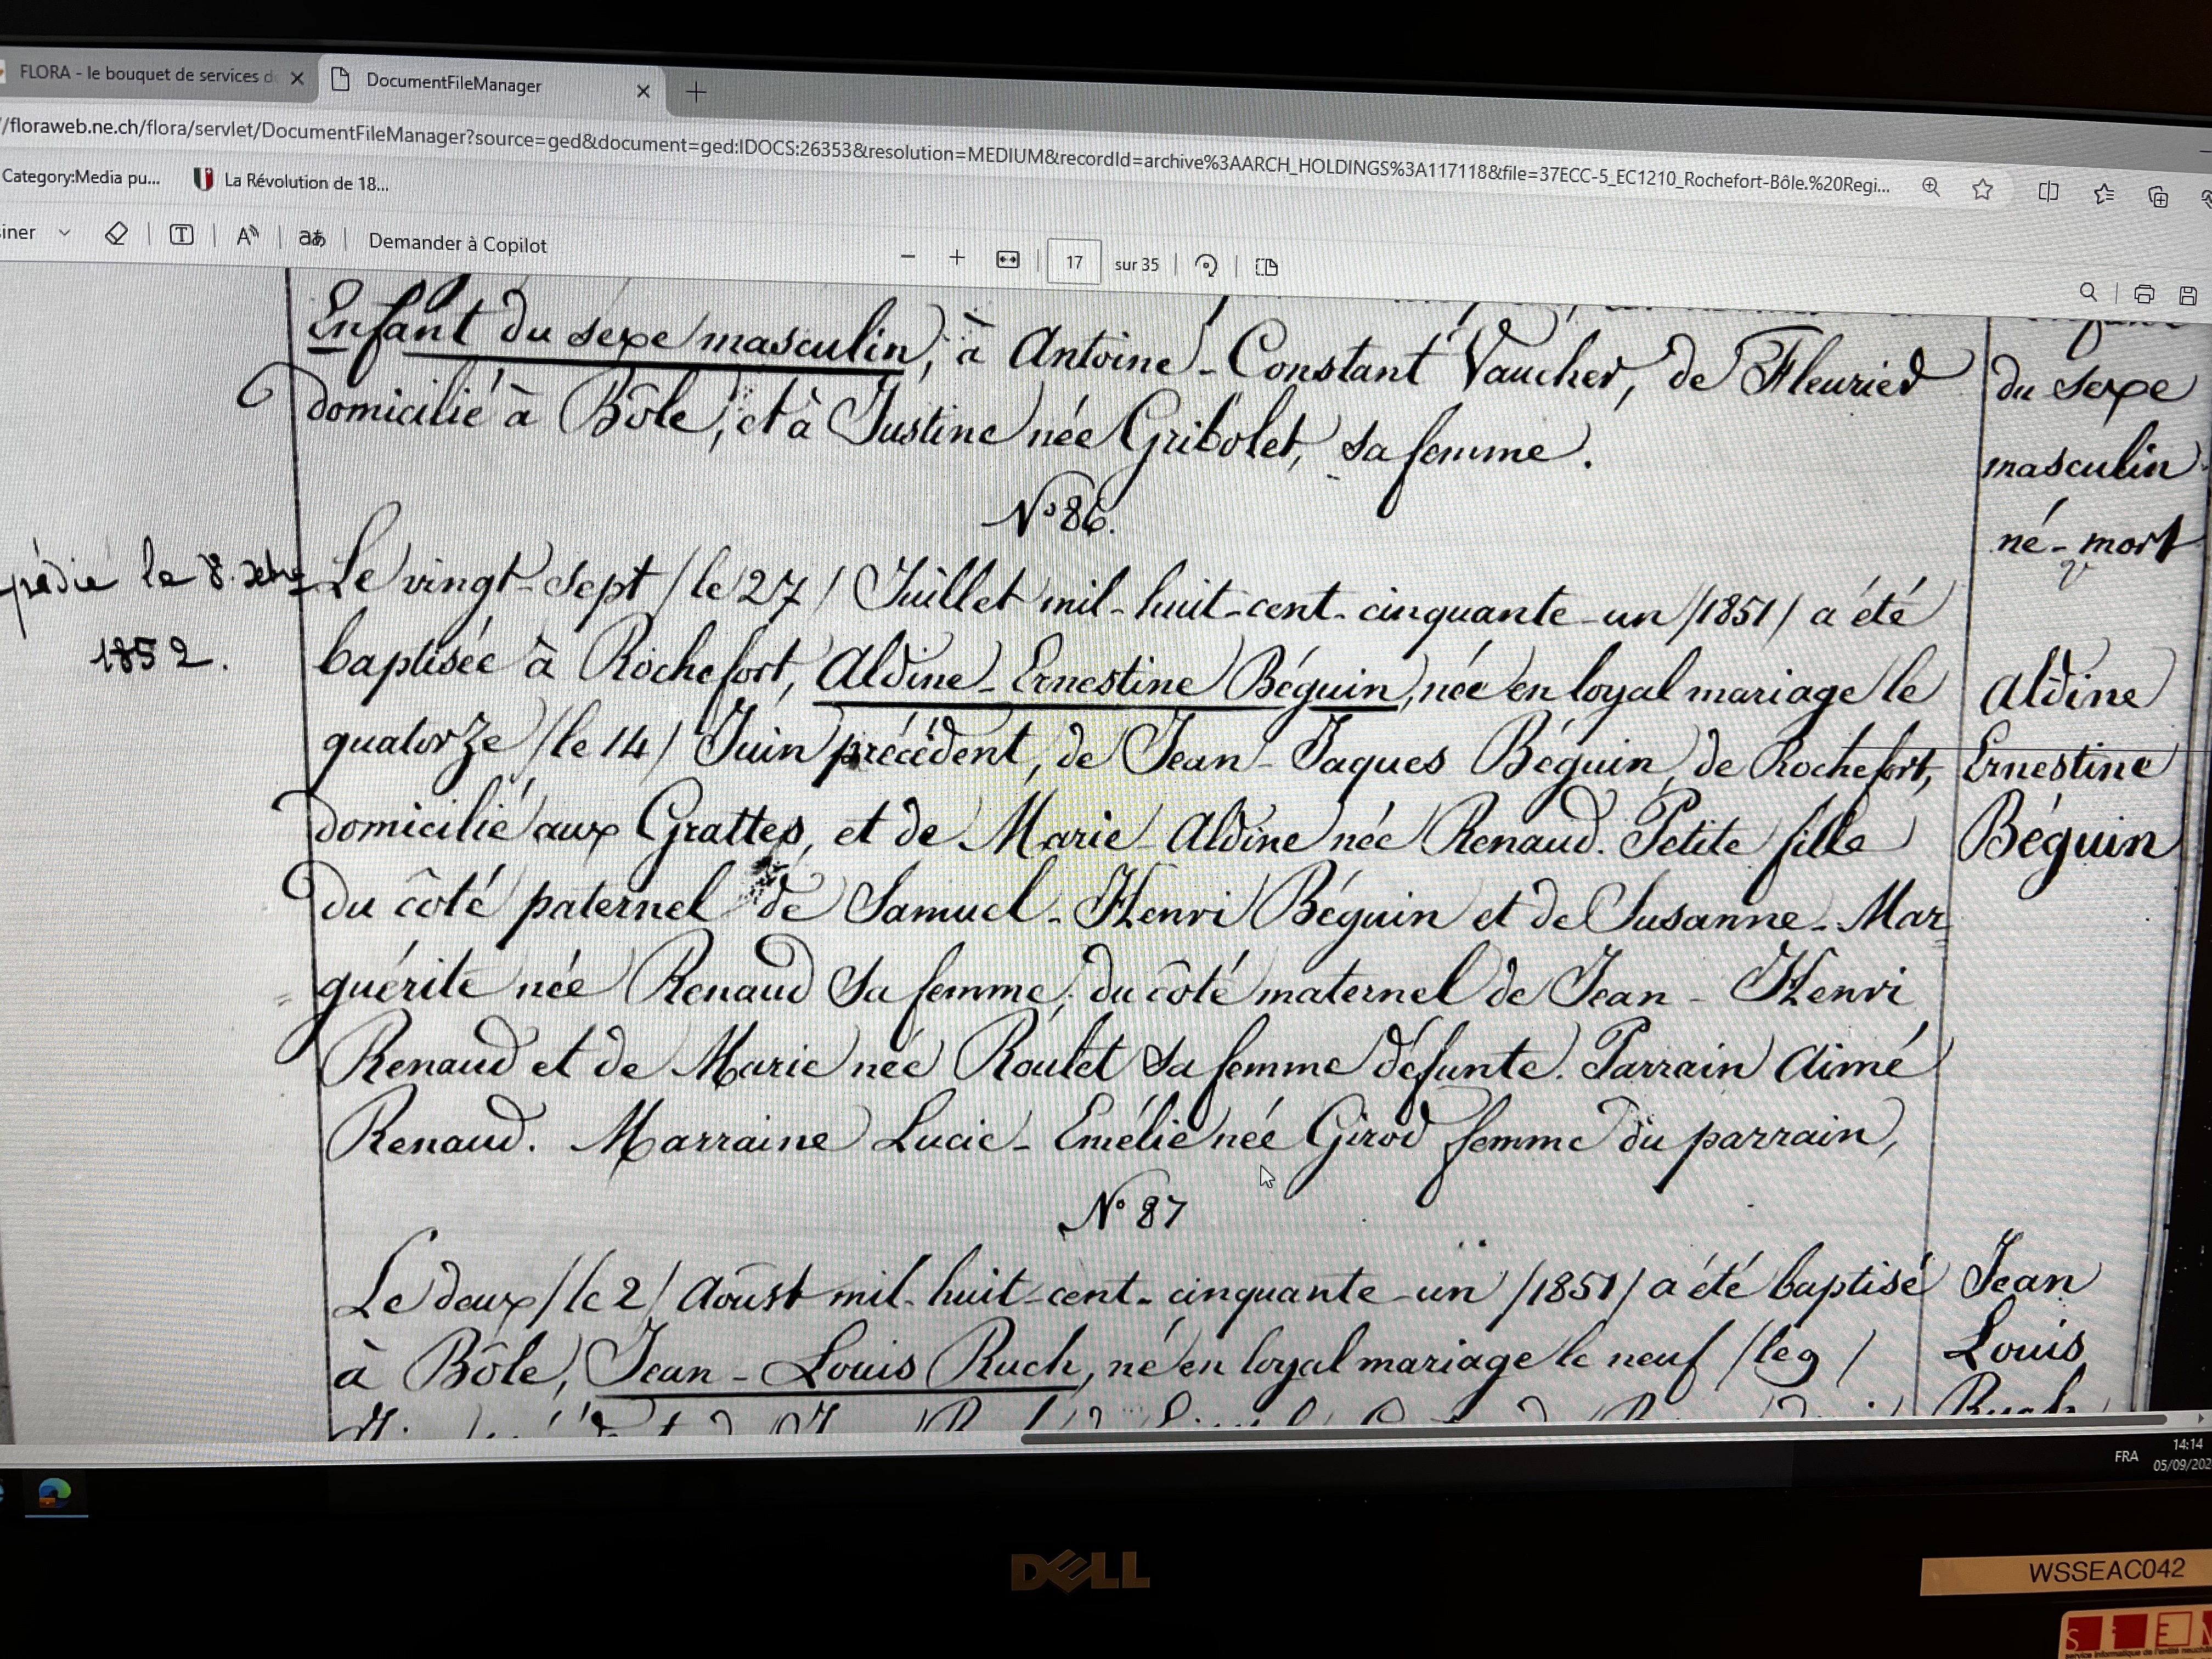 FLORA - le bouquet de services d
DocumentFileManager
//floraweb.ne.ch/flora/servlet/DocumentFileManager?source=ged&document=ged:IDOCS:26353&resolution=MEDIUM&recordId=archive%3AARCH_HOLDINGS%3A117118&file=37ECC-5_EC1210_Rochefort-Bôle.%20Regi...
Category:Media pu...
La Révolution de 18...
siner
Demander à Copilot
17 sur 35
Enfant du sexe masculin, à Antoine-Constant Vaucher, de Fleurier
domicilié à Bôle, et à Justine née Gribolet, sa femme.
du sexe
masculin
né-mort
N° 86.
pédié le 8.
1852.
Le vingt-sept /le 27/ Juillet mil-huit-cent-cinquante-un /1851/ a été
baptisée à Rochefort, Aldine-Ernestine Béguin, née en loyal mariage le
quatorze /le 14/ Juin précédent, de Jean-Jaques Béguin, de Rochefort,
domicilié aux Grattes, et de Marie-Aldine née Renaud. Petite fille
du côté paternel de Samuel-Henri Béguin et de Susanne-Mar
guérite née Renaud sa femme, du côté maternel de Jean-Henri
Renaud et de Marie née Roulet sa femme défunte. Parrain Aimé
Renaud. Marraine Lucie-Emélie née Girod femme du parrain,
Aldine
Ernestine
Béguin
N° 87
Le deux /le 2/ Aoûst mil-huit-cent-cinquante-un /1851/ a été baptisé
à Bôle, Jean-Louis Ruch, né en loyal mariage le neuf /le 9/
Jean
Louis
Ruch
FRA
14:14
05/09/202
DELL
WSSEAC042